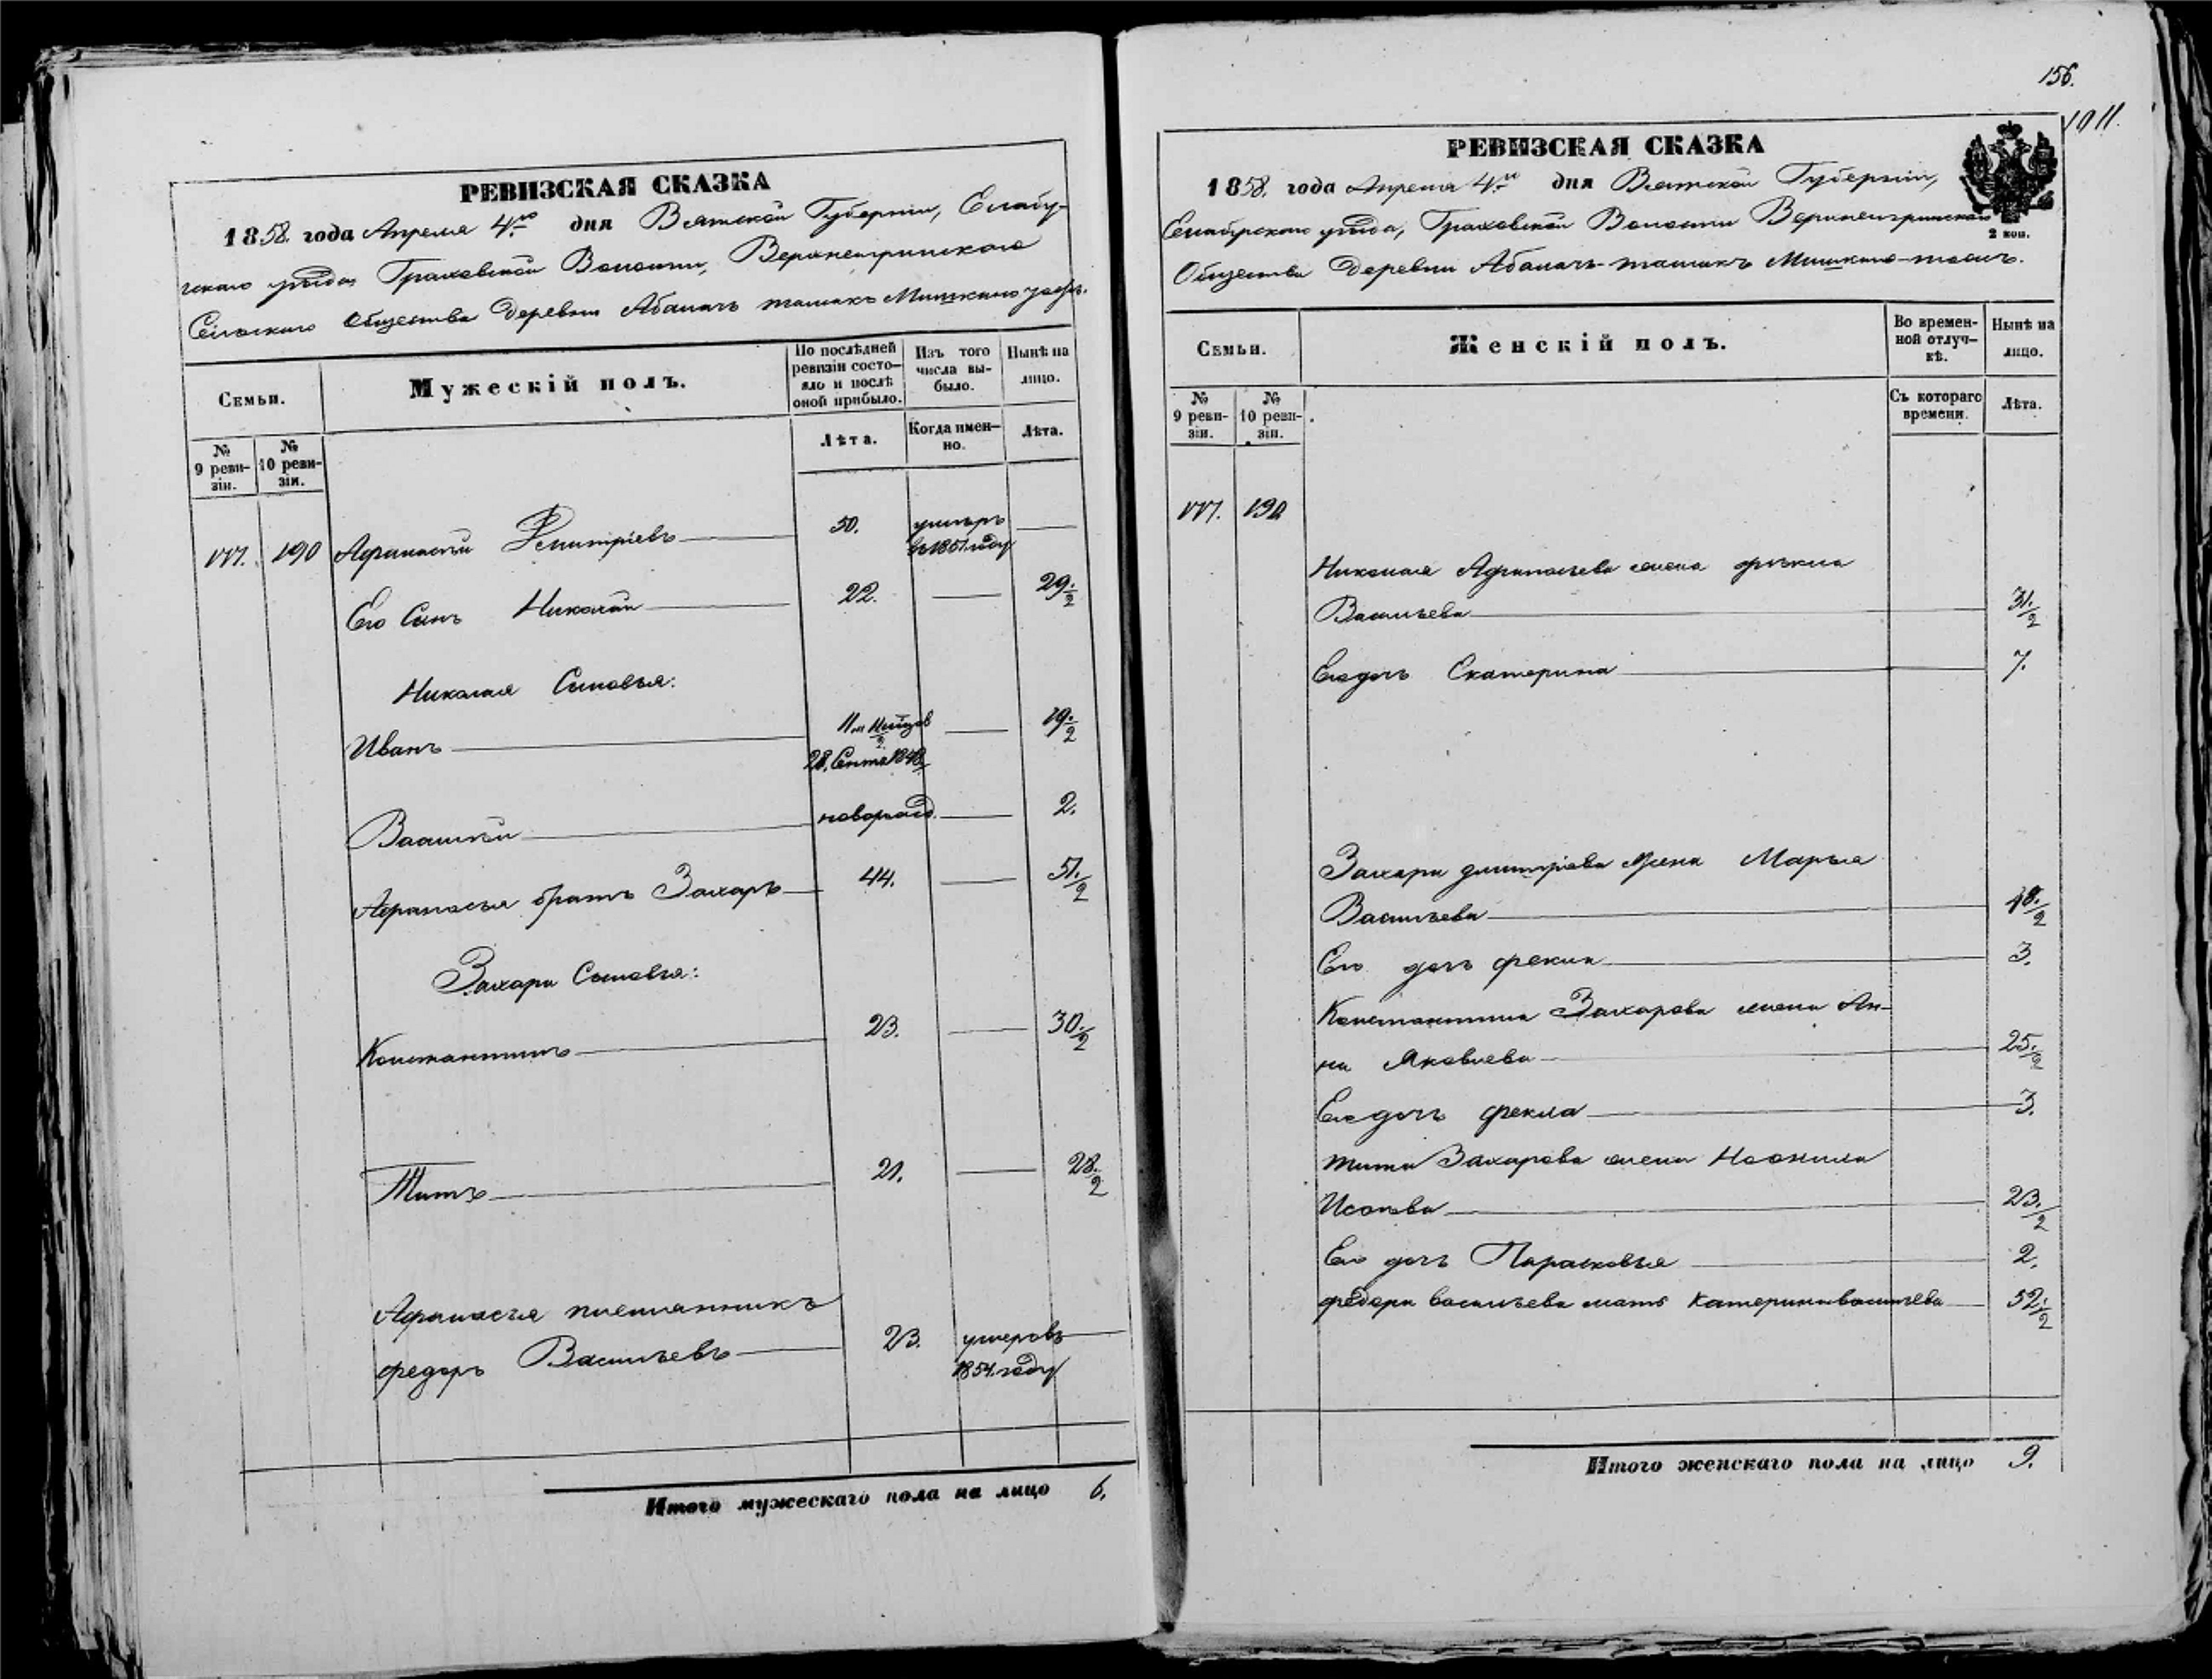 РЕВИЗСКАЯ СКАЗКА
1858. года Апреля 4.го дня Вятской Губернiи, Елабу-
гскаго уѣзда Граховской Волости, Верхнеигринскаго
Сельскаго Общества Деревни Абалачь ташакъ Мишкино
Семьи.
Мужескiй полъ.
По послѣдней ревизiи состо-
яло и послѣ оной прибыло.
Изъ того числа вы-
было.
Нынѣ на лицо.
№ 9 реви-
зiи.
№ 10 реви-
зiи.
Лѣта.
Когда имен-
но.
Лѣта.
190 Афанасiй Дмитрiевъ 50. умеръ
въ 1851 году
Его Сынъ Николай 22. 29 1/2
Николая Сыновья:
Иванъ 19 1/2
28. Сентя 1848
Васил новорожд. 2.
Афанасья братъ Захаръ 44. 51. 1/2
Захара Сыновья:
Константинъ 23. 30. 1/2
Титъ 21. 28. 1/2
Афанасья племянникъ
федоръ Васильевъ 23. умеръ въ
1854. году
Итого мужескаго пола на лицо 6.
156.
1011.
РЕВИЗСКАЯ СКАЗКА
1858. года Апреля 4.го дня Вятской Губернiи,
Елабугскаго уѣзда, Граховской Волости Верхнеигринскаго
2 коп.
Общества Деревни Абалачь-ташакъ Мишкино-тожъ.
Семьи.
Женскiй полъ.
Во времен-
ной отлуч-
кѣ.
Нынѣ на лицо.
№ 9 реви-
зiи.
№ 10 реви-
зiи.
Съ котораго
времени.
Лѣта.
190
Николая Афанасьева жена
Васильева 31. 1/2
Его дочь Екатерина 7.
Захара дмитрiева Жена Марья
Васильева 48. 1/2
Его дочь фекла 3.
Константина Захарова жена Ан-
на Яковлева 25. 1/2
Его дочь фекла 3.
тита Захарова жена Неонила
Исаева 23. 1/2
Его дочь Парасковья 2.
федора васильева мать Катерина васильева 52. 1/2
Итого женскаго пола на лицо 9.